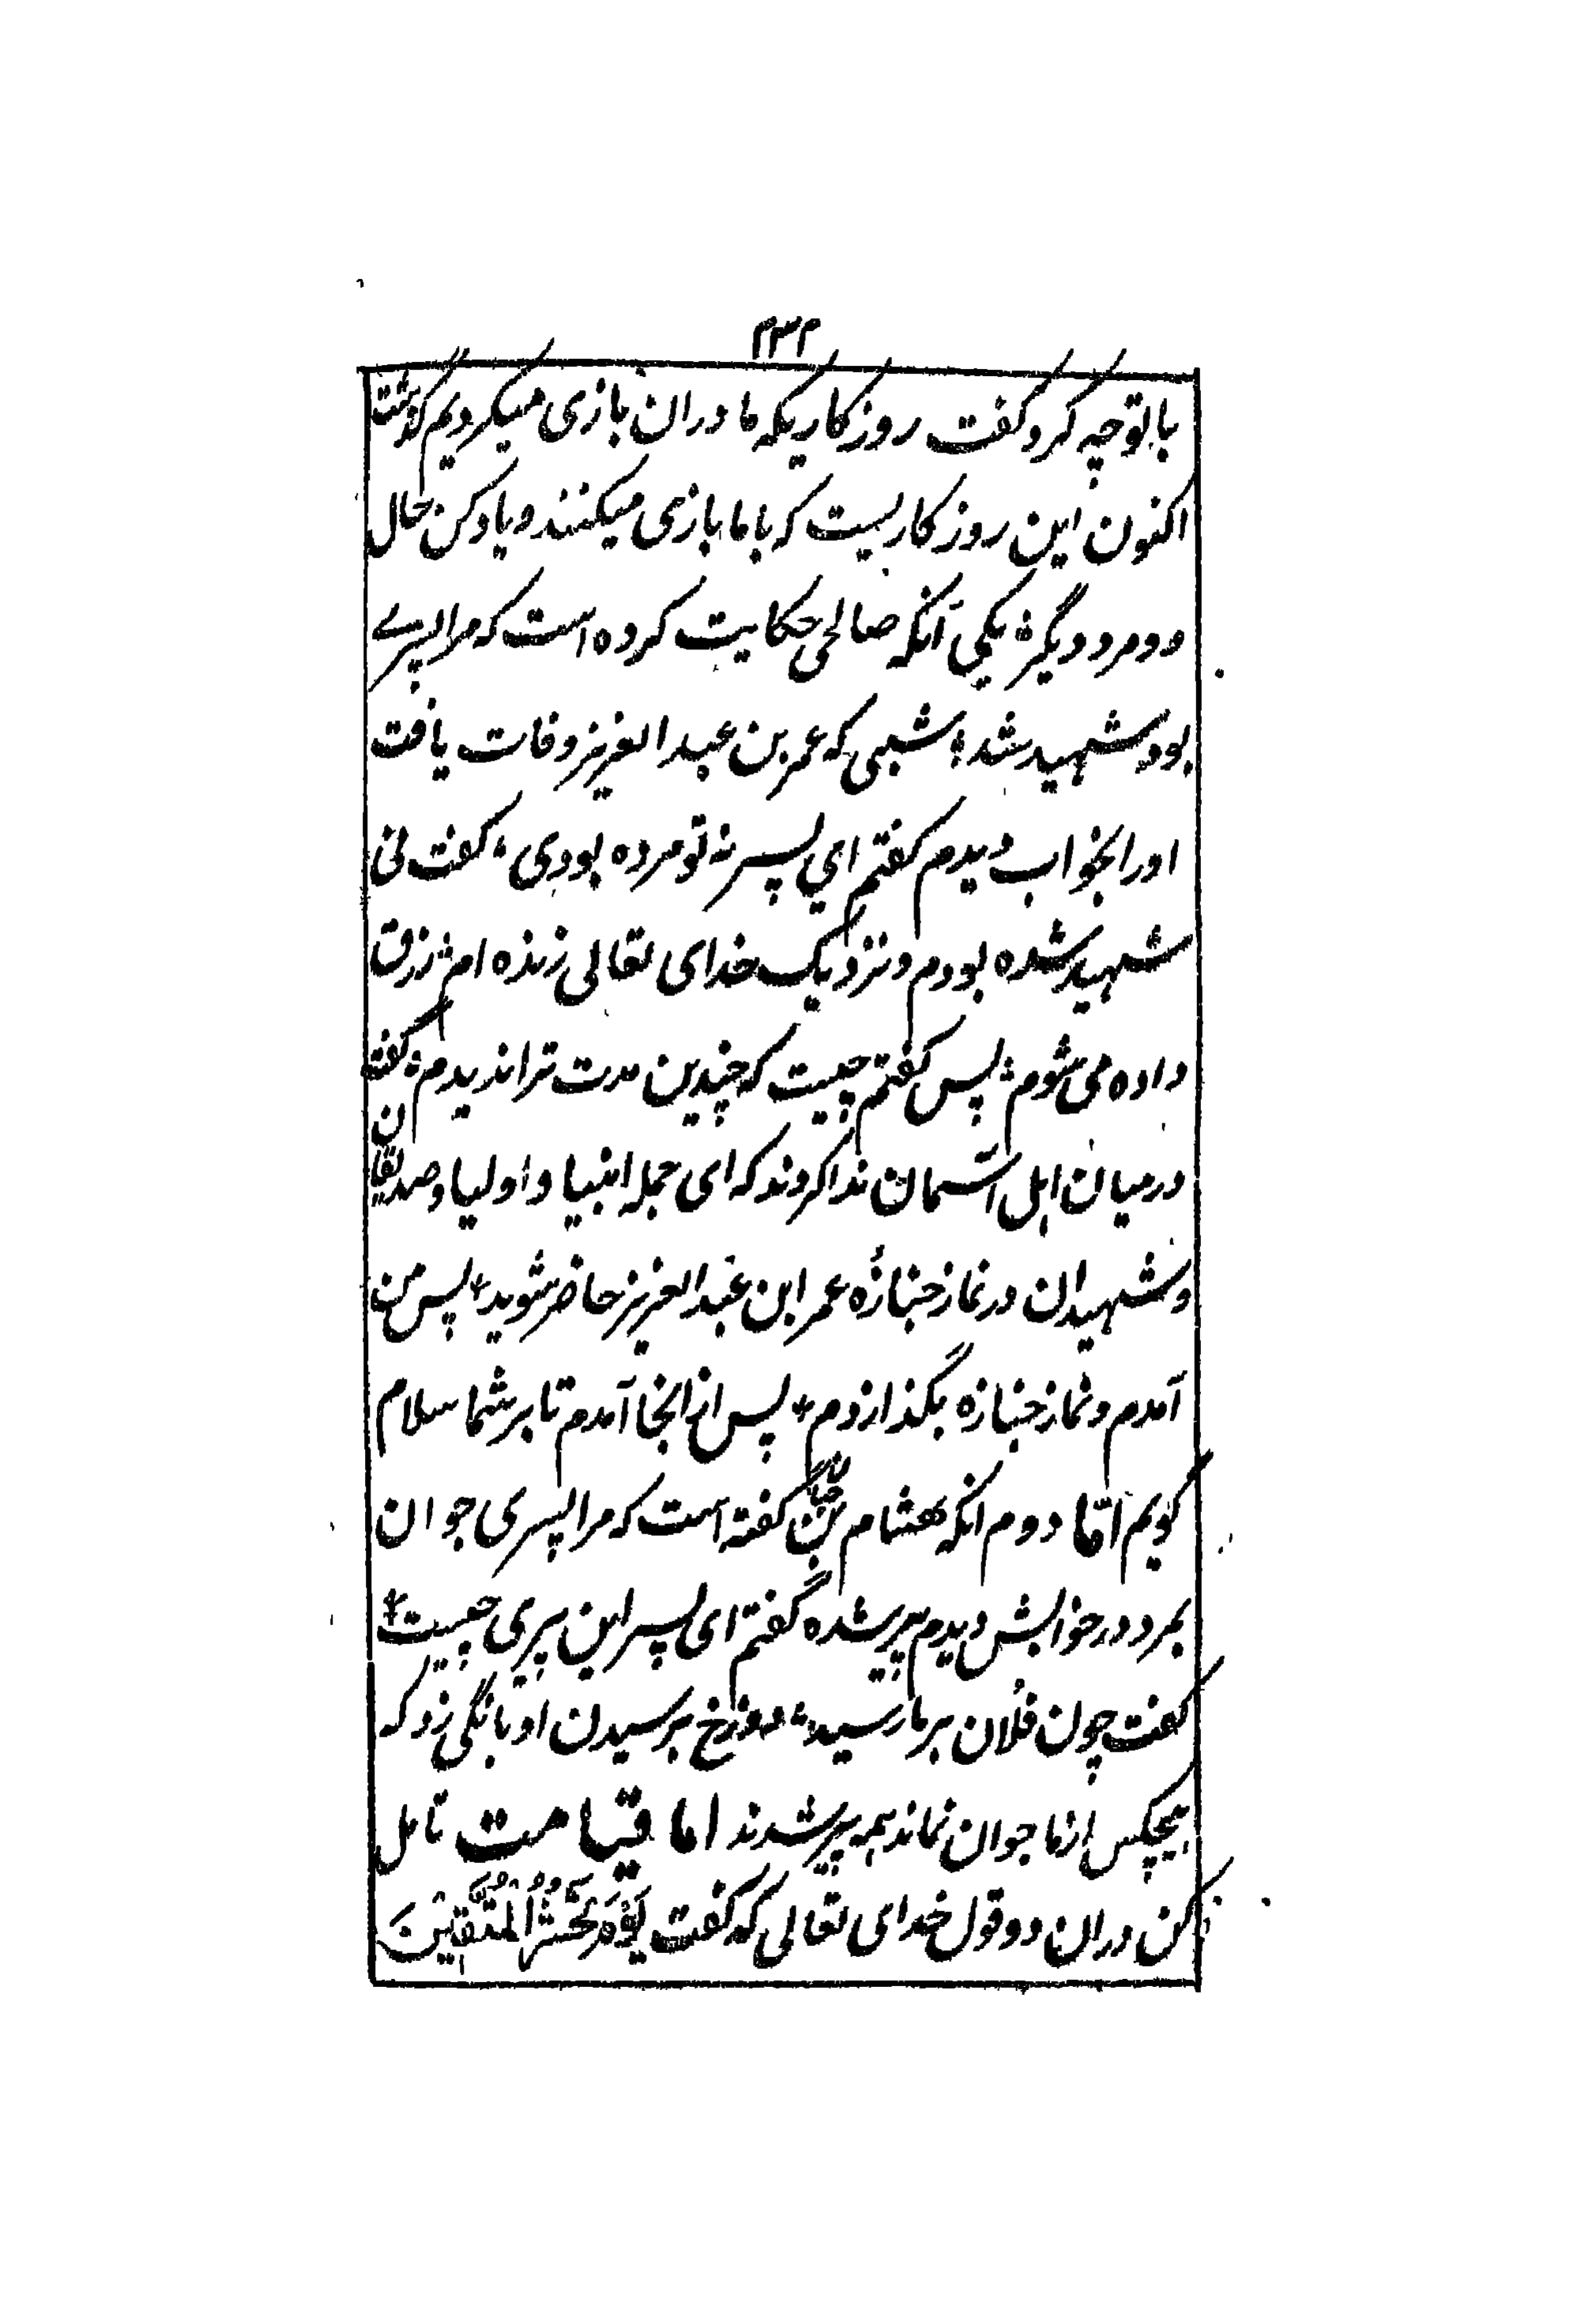 ۲۳۲
با توچه کرد گفت روزگاریکه ما دران بازی میکردیم گذشت
اکنون این روزگاریست که با ما بازی میکنند و یاد کن حال
دو مرد دیگر؛ یکی آنکه صالحی حکایت کرده است که مرا پسرے
بود شهید شد؛ شبی که عمر بن عبد العزیز وفات یافت
اورا بخواب دیدم گفتم ای پسر نه تو مرده بودی؛ گفت نی
شهید شده بودم و نزدیک خدای تعالی زنده ام؛ رزق
داده می شوم؛ پس گفتم چیست که چندین مدت ترا ندیدم؛ گفت
درمیان اهل آسمان ندا کردند که ای جمله انبیا و اولیا و صدیقان
و شهیدان در نماز جنازهٔ عمر ابن عبد العزیز حاضر شوید* پس من
آمدم و نماز جنازه بگذاردم* پس از انجا آمدم تا بر شما سلام
گویم امّا دوم آنکه هشام بن حسان گفته است که مرا پسری جوان
بمرد در خوابش دیدم پیر شده گفتم ای پسر این پیری چیست*
گفت چون فلان بر ما رسید؛ دوزخ برسیدن او بانگی زد که
هیچکس از ما جوان نماند همه پیر شدند اما قیامت تامل
کن دران دو قول خدای تعالی که گفت يَوْمَ نَحْشُرُ الْمُتَّقِيْنَ